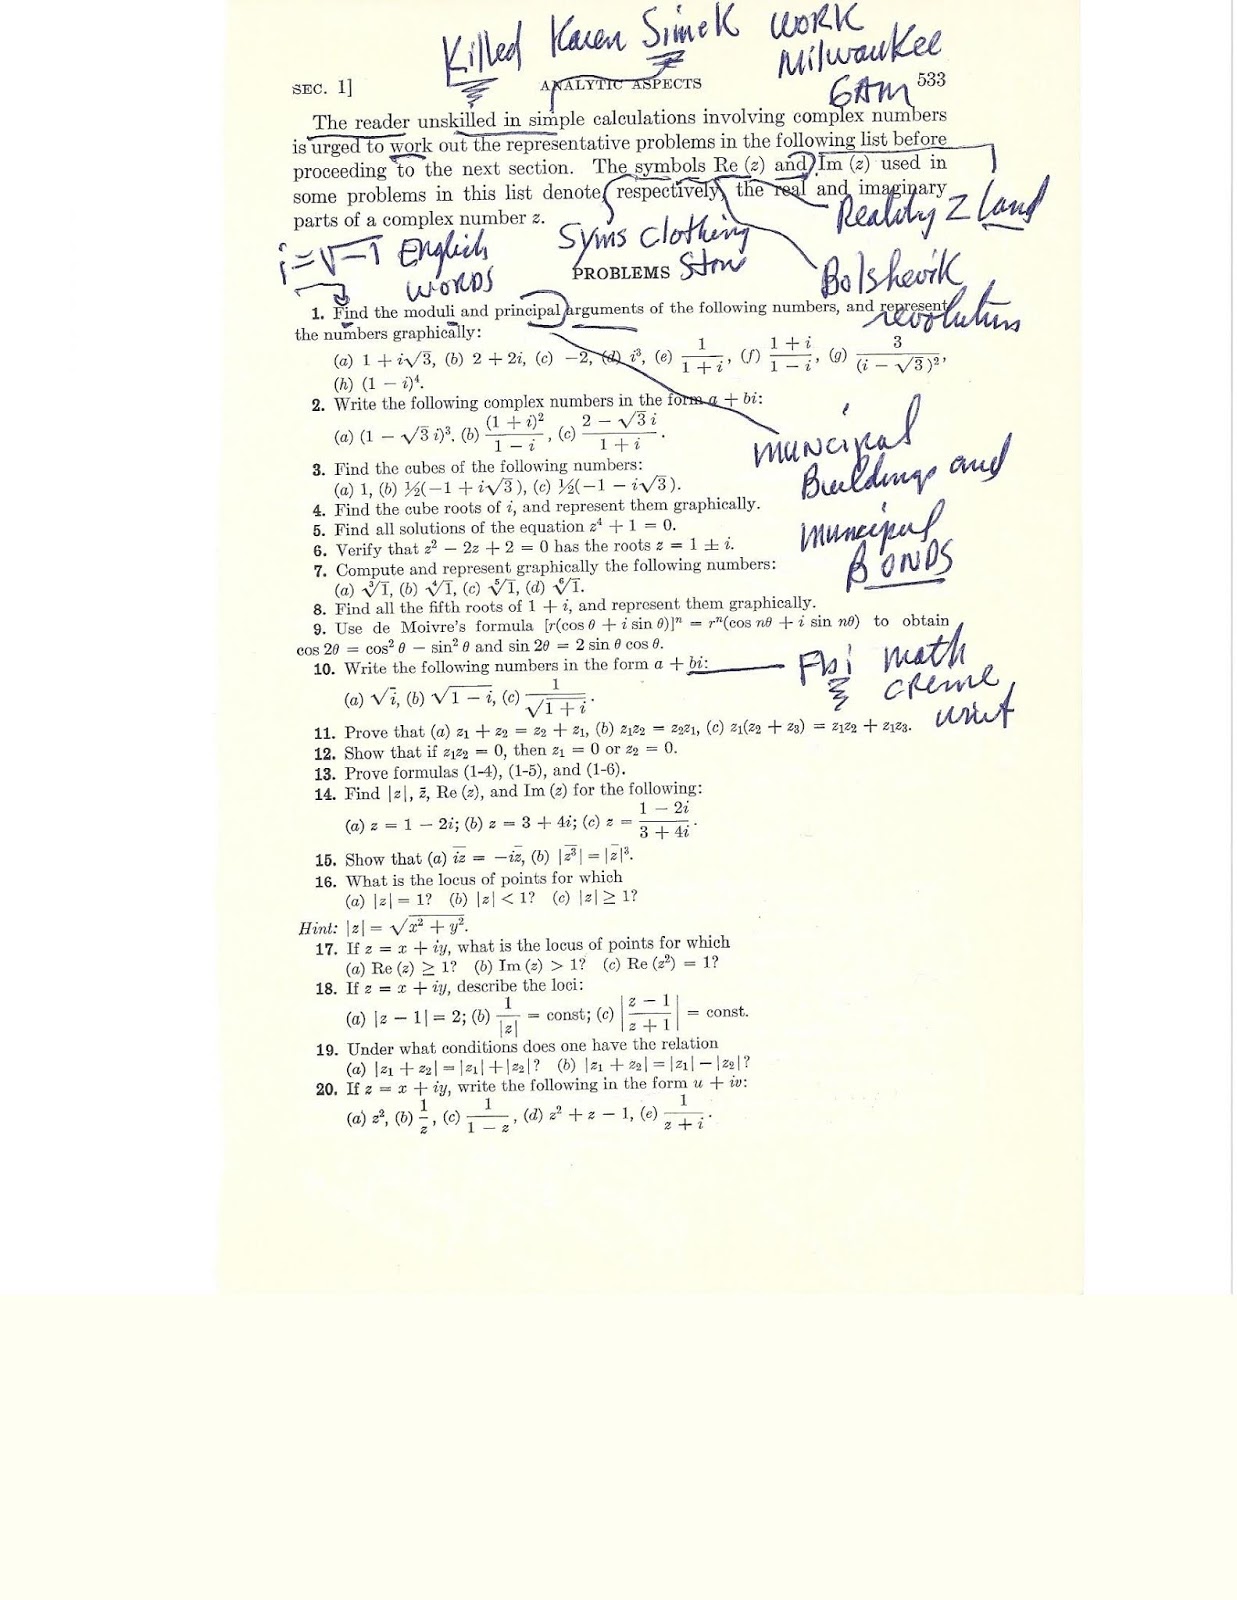 Killed Karen Simek WORK
Milwaukee
6AM
SEC. 1] ANALYTIC ASPECTS 533
The reader unskilled in simple calculations involving complex numbers
is urged to work out the representative problems in the following list before
proceeding to the next section. The symbols Re (z) and Im (z) used in
some problems in this list denote, respectively, the real and imaginary
parts of a complex number z.
Reality Z Land
i = √-1 English
WORDS
Syms clothing
Store
Bolshevik
revolution
PROBLEMS
1. Find the moduli and principal arguments of the following numbers, and represent
the numbers graphically:
(a) 1 + i√3, (b) 2 + 2i, (c) −2, (d) i³, (e) 1/(1 + i), (f) (1 + i)/(1 − i), (g) 3/(i − √3)²,
(h) (1 − i)⁴.
2. Write the following complex numbers in the form a + bi:
(a) (1 − √3 i)³. (b) (1 + i)²/(1 − i), (c) (2 − √3 i)/(1 + i).
muncipal
Buildings and
municipal
BONDS
3. Find the cubes of the following numbers:
(a) 1, (b) ½(−1 + i√3), (c) ½(−1 − i√3).
4. Find the cube roots of i, and represent them graphically.
5. Find all solutions of the equation z⁴ + 1 = 0.
6. Verify that z² − 2z + 2 = 0 has the roots z = 1 ± i.
7. Compute and represent graphically the following numbers:
(a) ∛1, (b) ∜1, (c) ⁵√1, (d) ⁶√1.
8. Find all the fifth roots of 1 + i, and represent them graphically.
9. Use de Moivre's formula [r(cos θ + i sin θ)]ⁿ = rⁿ(cos nθ + i sin nθ) to obtain
cos 2θ = cos² θ − sin² θ and sin 2θ = 2 sin θ cos θ.
10. Write the following numbers in the form a + bi:
Fbi math
creme
unit
(a) √i, (b) √(1 − i), (c) 1/√(1 + i).
11. Prove that (a) z₁ + z₂ = z₂ + z₁, (b) z₁z₂ = z₂z₁, (c) z₁(z₂ + z₃) = z₁z₂ + z₁z₃.
12. Show that if z₁z₂ = 0, then z₁ = 0 or z₂ = 0.
13. Prove formulas (1-4), (1-5), and (1-6).
14. Find |z|, z̄, Re (z), and Im (z) for the following:
(a) z = 1 − 2i; (b) z = 3 + 4i; (c) z = (1 − 2i)/(3 + 4i).
15. Show that (a) i̅z̅ = −iz̄, (b) |z̅³| = |z̄|³.
16. What is the locus of points for which
(a) |z| = 1? (b) |z| < 1? (c) |z| ≥ 1?
Hint: |z| = √(x² + y²).
17. If z = x + iy, what is the locus of points for which
(a) Re (z) ≥ 1? (b) Im (z) > 1? (c) Re (z²) = 1?
18. If z = x + iy, describe the loci:
(a) |z − 1| = 2; (b) 1/|z| = const; (c) |(z − 1)/(z + 1)| = const.
19. Under what conditions does one have the relation
(a) |z₁ + z₂| = |z₁| + |z₂|? (b) |z₁ + z₂| = |z₁| − |z₂|?
20. If z = x + iy, write the following in the form u + iv:
(a) z², (b) 1/z, (c) 1/(1 − z), (d) z² + z − 1, (e) 1/(z + i).